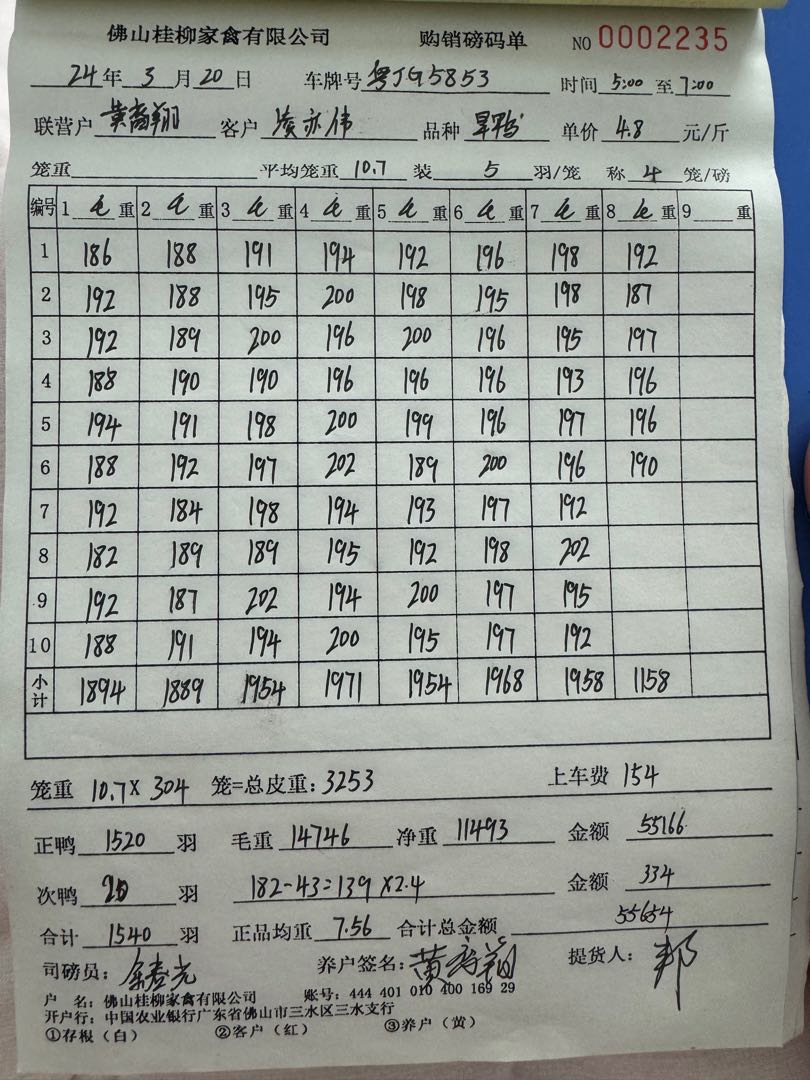 佛山桂柳家禽有限公司 购销磅码单 NO 0002235
24年 3月 20日 车牌号 粤JG5853 时间 5:00 至 7:00
联营户 黄 翔 客户 凌亦伟 品种 旱鸭 单价 4.8 元/斤
笼重 平均笼重 10.7 装 5 羽/笼 称 4 笼/磅
编号 1 毛 重 2 毛 重 3 毛 重 4 毛 重 5 毛 重 6 毛 重 7 毛 重 8 毛 重 9 重
1 186 188 191 194 192 196 198 192
2 192 188 195 200 198 195 198 187
3 192 189 200 196 200 196 195 197
4 188 190 190 196 196 196 193 196
5 194 191 198 200 199 196 197 196
6 188 192 197 202 189 200 196 190
7 192 184 198 194 193 197 192
8 182 189 189 195 192 198 202
9 192 187 202 194 200 197 195
10 188 191 194 200 195 197 192
小计 1894 1889 1954 1971 1954 1968 1958 1158
笼重 10.7 X 304 笼=总皮重: 3253 上车费 154
正鸭 1520 羽 毛重 14746 净重 11493 金额 55166
次鸭 20 羽 182-43=139 X2.4 金额 334
合计 1540 羽 正品均重 7.56 合计总金额 55654
司磅员: 养户签名: 黄 翔 提货人: 邦
户 名: 佛山桂柳家禽有限公司 账号: 444 401 010 400 169 29
开户行: 中国农业银行广东省佛山市三水区三水支行
①存根(白) ②客户(红) ③养户(黄)